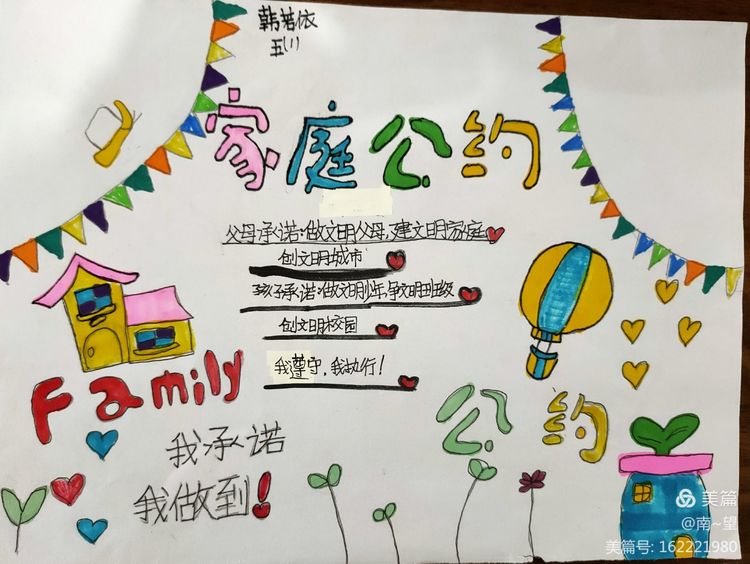 韩若依
五(1)
家庭公约
父母承诺:做文明父母,建文明家庭
创文明城市
孩子承诺:做文明少年,争文明班级
创文明校园
我遵守,我执行!
Family
公约
我承诺
我做到!
美篇
@南~望
美篇号: 162221980